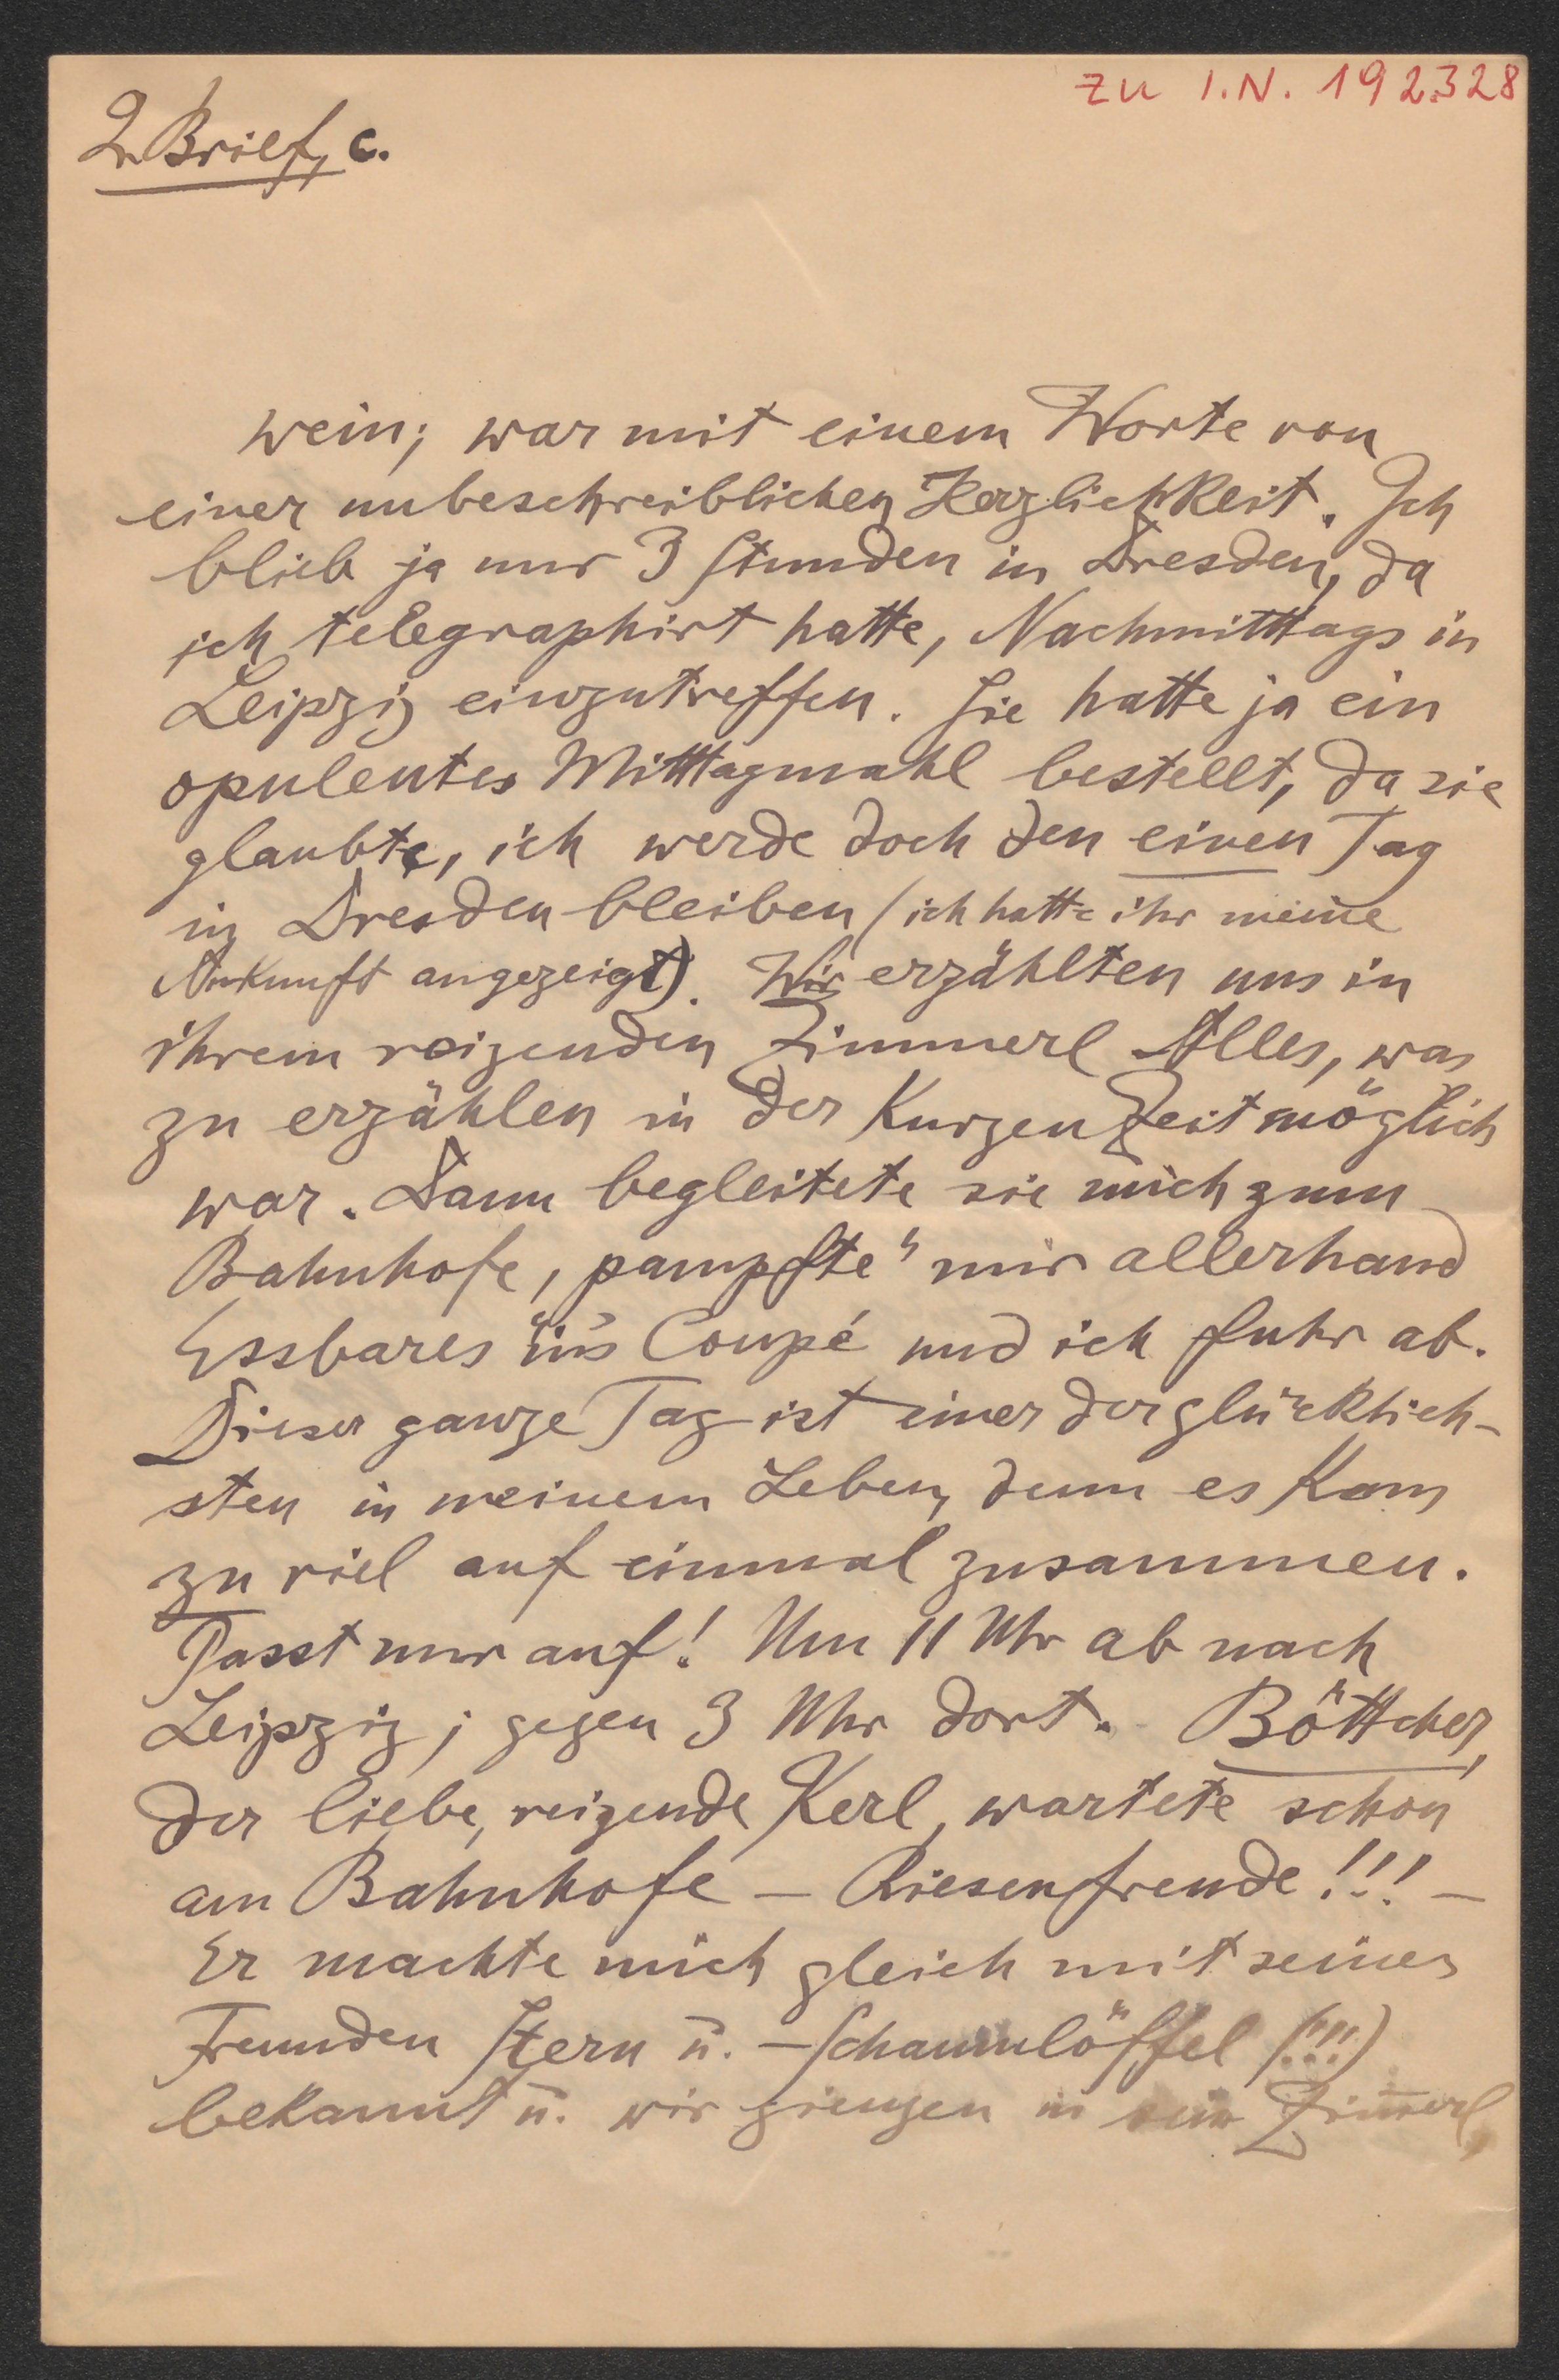 zu I.N. 192328
2. Brief, c.
wein; war mit einem Worte von
einer unbeschreiblichen Herzlichkeit. Ich
blieb ja nur 3 Stunden in Dresden, da
ich telegraphirt hatte, Nachmitttags in
Leipzig einzutreffen. Sie hatte ja ein
opulentes Mitttagmahl bestellt, da sie
glaubte, ich werde doch den einen Tag
in Dresden bleiben (ich hatte ihr meine
Ankunft angezeigt). Wir erzählten uns in
ihrem reizenden Zimmerl Alles, was
zu erzählen in der kurzen Zeit möglich
war. Dann begleitete sie mich zum
Bahnhofe, „pampfte" mir allerhand
Essbares in's Coupé und ich fuhr ab.
Dieser ganze Tag ist einer der glücklich-
sten in meinem Leben, denn es kam
zu viel auf einmal zusammen.
Passt nur auf! Um 11 Uhr ab nach
Leipzig; gegen 3 Uhr dort. Böttcher,
der liebe, reizende Kerl, wartete schon
am Bahnhofe – Riesenfreude!!! –
Er machte mich gleich mit seinen
Freunden Stern u. – Schaumlöffel (!!!)
bekannt u. wir giengen in sein Zim̅erl,